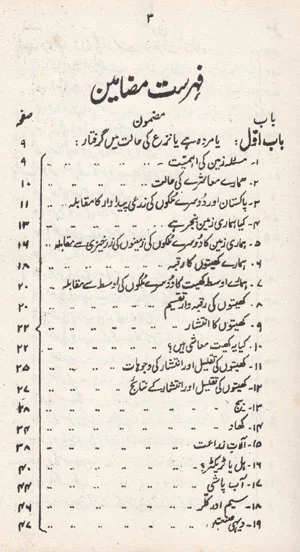 ۳
فہرست مضامین
باب مضمون صفحہ
باب اوّل: یا مردہ ہے یا نزع کی حالت میں گرفتار: ۹
۱- مسئلہ زمین کی اہمیت ۹
۲- ہمارے معاشرے کی حالت ۱۰
۳- پاکستان اور دوسرے ملکوں کی زرعی پیداوار کا مقابلہ ۱۱
۴- کیا ہماری زمین بنجر ہے ۱۳
۵- ہماری زمین کا دوسرے ملکوں کی زمینوں کی زرخیزی سے مقابلہ ۱۶
۶- ہمارے کھیتوں کا رقبہ ۱۸
۷- ہمارے اوسط کھیت کا دوسرے ملکوں کی اوسط سے مقابلہ ۲۰
۸- کھیتوں کی رقبہ وار تقسیم ۲۰
۹- کھیتوں کا انتشار ۲۲
۱۰- کیا یہ کھیت معاشی ہیں؟ ۲۲
۱۱- کھیتوں کی تقلیل اور انتشار کی وجوہات ۲۵
۱۲- کھیتوں کی تقلیل اور انتشار کے نتائج ۲۷
۱۳- بیج ۲۸
۱۴- کھاد ۳۴
۱۵- آلات زراعت ۳۸
۱۶- ہل یا ٹریکٹر؟ ۴۰
۱۷- آب پاشی ۴۴
۱۸- سیم اور کلر ۴۶
۱۹- دیہی صنعت ۴۷